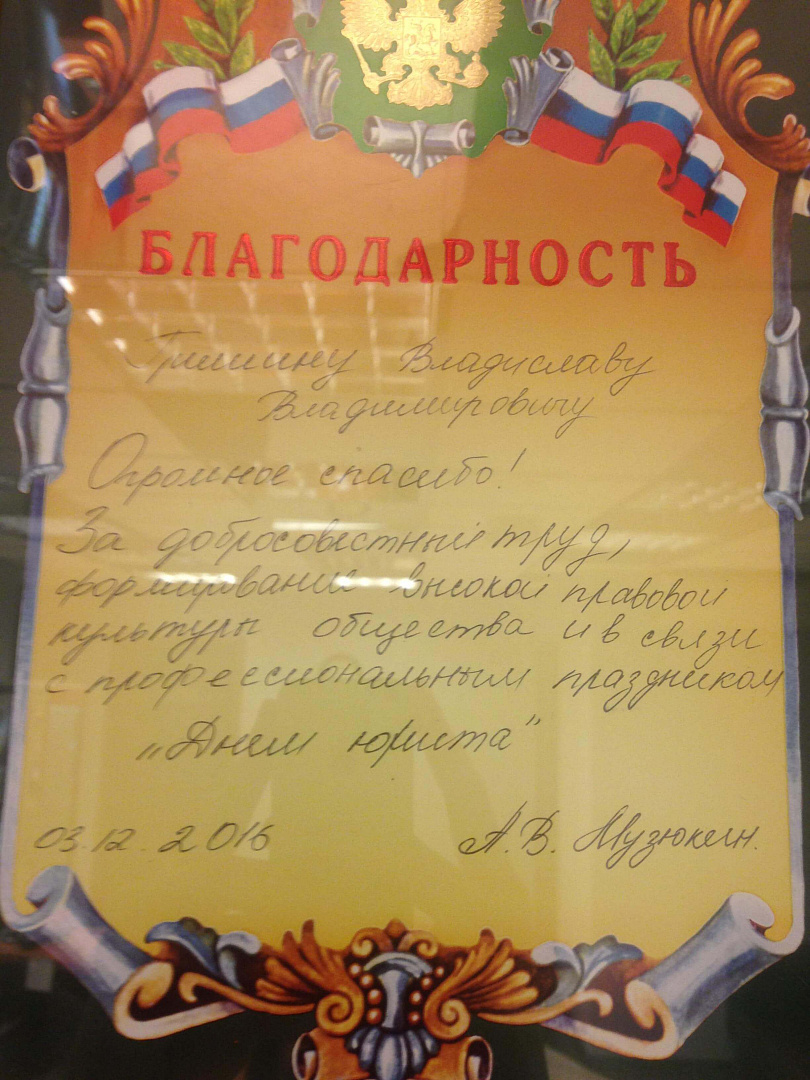 БЛАГОДАРНОСТЬ
Гришину Владиславу
Владимировичу
Огромное спасибо!
За добросовестный труд,
формирование высокой правовой
культуры общества и в связи
с профессиональным праздником
„Днем юриста"
03.12.2016 А.В. Музюкин.